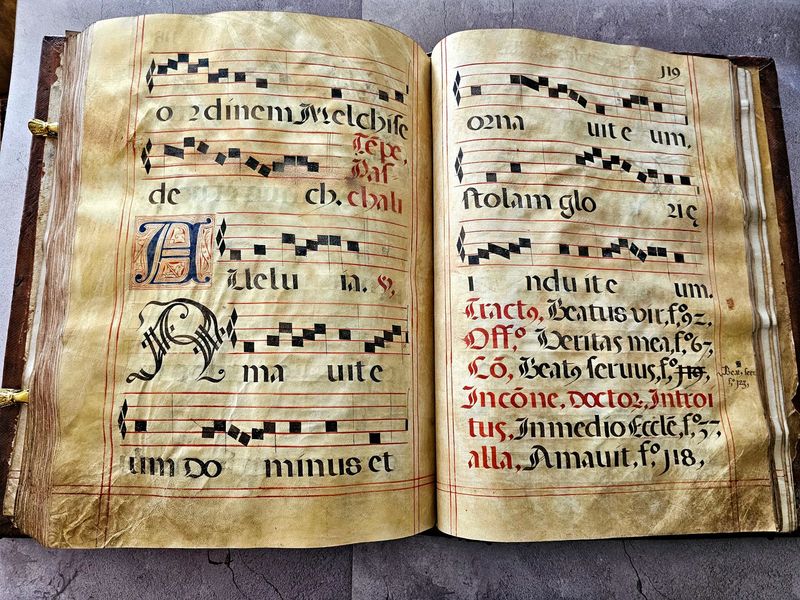 o rdinem Melchise
Tēpe,
Pas
de ch. chali
Alelu ia. ℣,
Ama uit e
um Do minus et
119
orna uit e um.
stolam glo rię
i ndu it e um.
Tractꝯ, Beatus vir, f.º 92,
Off.º Veritas mea, f.º 67,
Cō, Beatꝯ seruus, f.º 119,
Beat, seru
f.º 123,
In cōne, Doctor, Introi
tus, In medio Eccłe, f.º 57,
alla, Amauit, f.º 118,